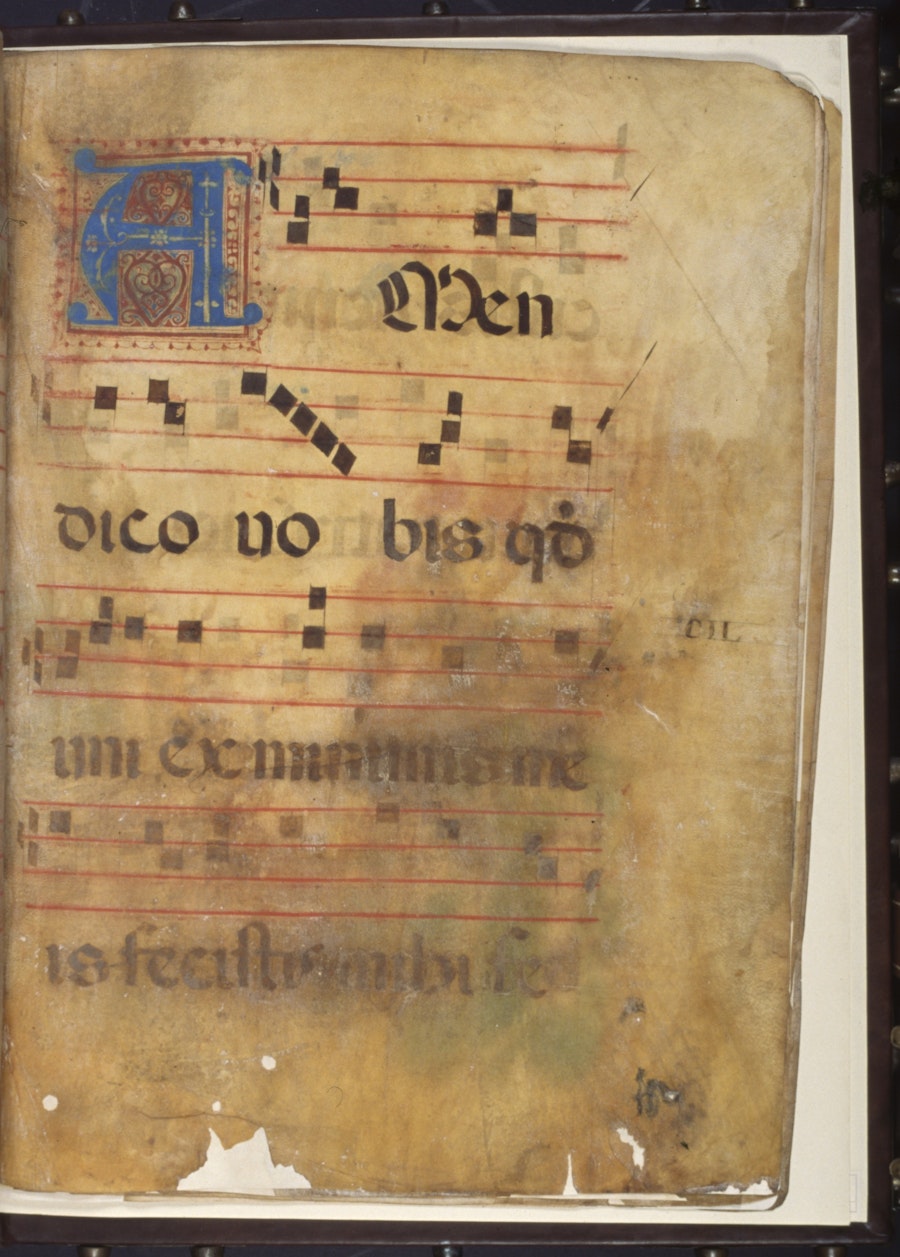 AMen
dico uo bis qđ
uni ex minimis me
is fecistis mihi fec
CIL